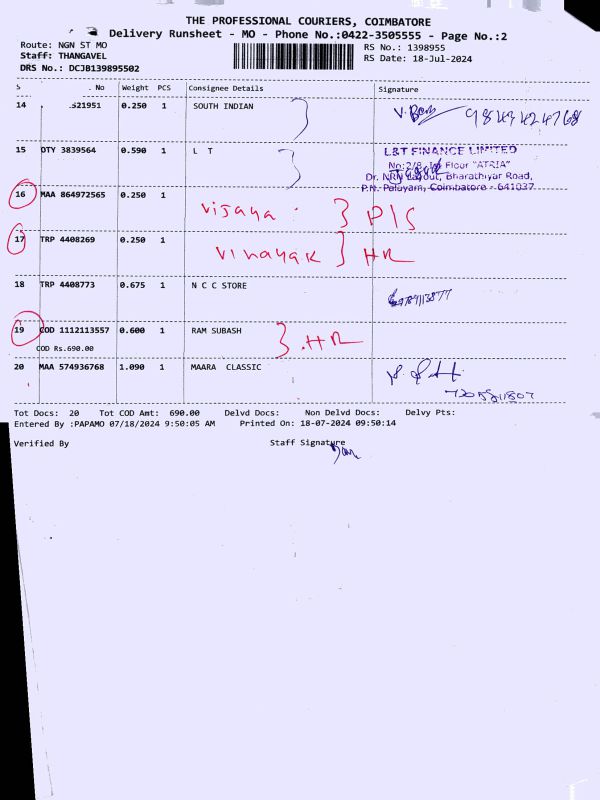 THE PROFESSIONAL COURIERS, COIMBATORE
Delivery Runsheet - MO - Phone No.:0422-3505555 - Page No.:2
Route: NGN ST MO
Staff: THANGAVEL
DRS No.: DCJB139895502
RS No.: 1398955
RS Date: 18-Jul-2024
S No Weight PCS Consignee Details Signature
14 521951 0.250 1 SOUTH INDIAN
15 DTY 3839564 0.590 1 L T
L&T FINANCE LIMITED
Floor "ATRIA"
Dr. NRN Layout, Bharathiyar Road,
P.N. Palayam, Coimbatore - 641037
16 MAA 864972565 0.250 1 Vijaya P/S
17 TRP 4408269 0.250 1 Vinayak HR
18 TRP 4408773 0.675 1 N C C STORE
19 COD 1112113557 0.600 1 RAM SUBASH HR
COD Rs.690.00
20 MAA 574936768 1.090 1 MAARA CLASSIC
Tot Docs: 20 Tot COD Amt: 690.00 Delvd Docs: Non Delvd Docs: Delvy Pts:
Entered By :PAPAMO 07/18/2024 9:50:05 AM Printed On: 18-07-2024 09:50:14
Verified By Staff Signature